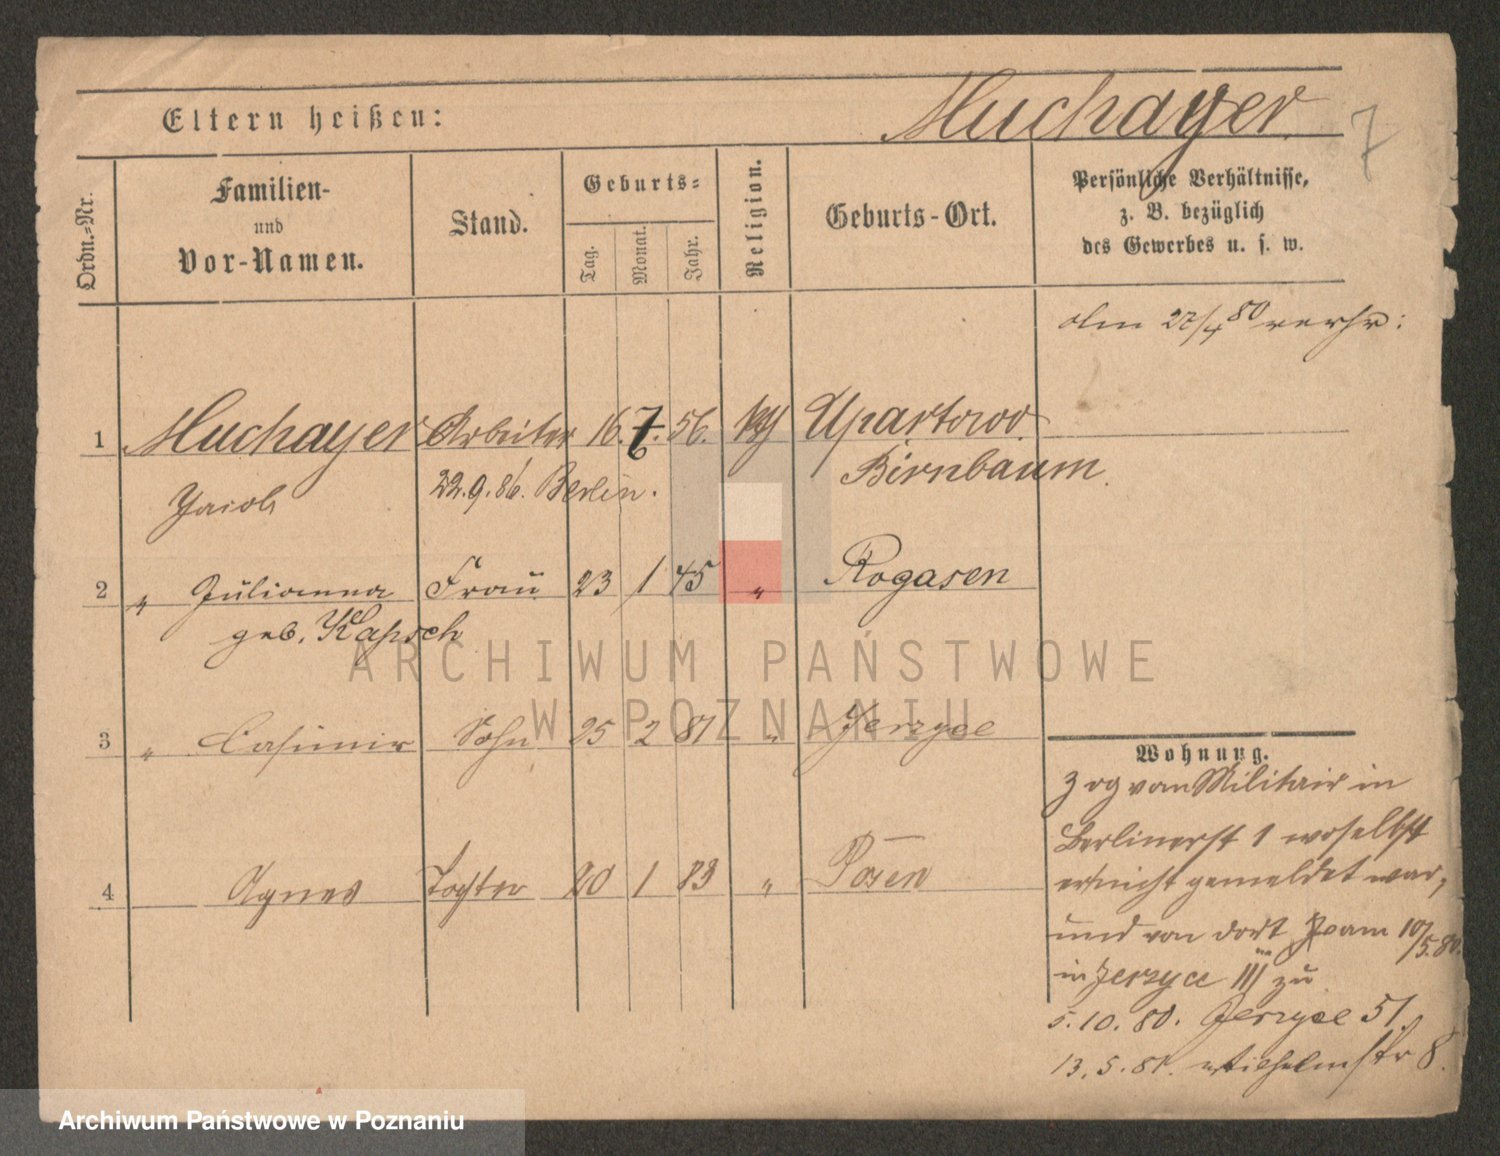 Eltern heißen:
Muchayer
7
Ordn.-Nr.
Familien-
und
Vor-Namen.
Stand.
Geburts-
Tag.
Monat.
Jahr.
Religion.
Geburts-Ort.
Persönliche Verhältnisse,
z. B. bezüglich
des Gewerbes u. s. w.
1 Muchayer Arbeiter 16. 7. 56. kth Upartowo
Birnbaum.
Jacob
22.9.86. Berlin.
2 " Julianna Frau 23 1 45 " Rogasen
geb. Kapsch
3 " Casimir Sohn 25 2 81 " Jerzyce
4 Agnes Tochter 20 1 83 " Posen
am 27/4 80 verhr:
Wohnung.
zog vom Militair in
Berlinerst 1 woselbst
er nicht gemeldet war,
und von dort am 10/5.80.
in Jerzyce III zu
5.10.80. Jerzyce 51.
13.5.81. Wilhelmstr 8.
ARCHIWUM PAŃSTWOWE
W POZNANIU
Archiwum Państwowe w Poznaniu